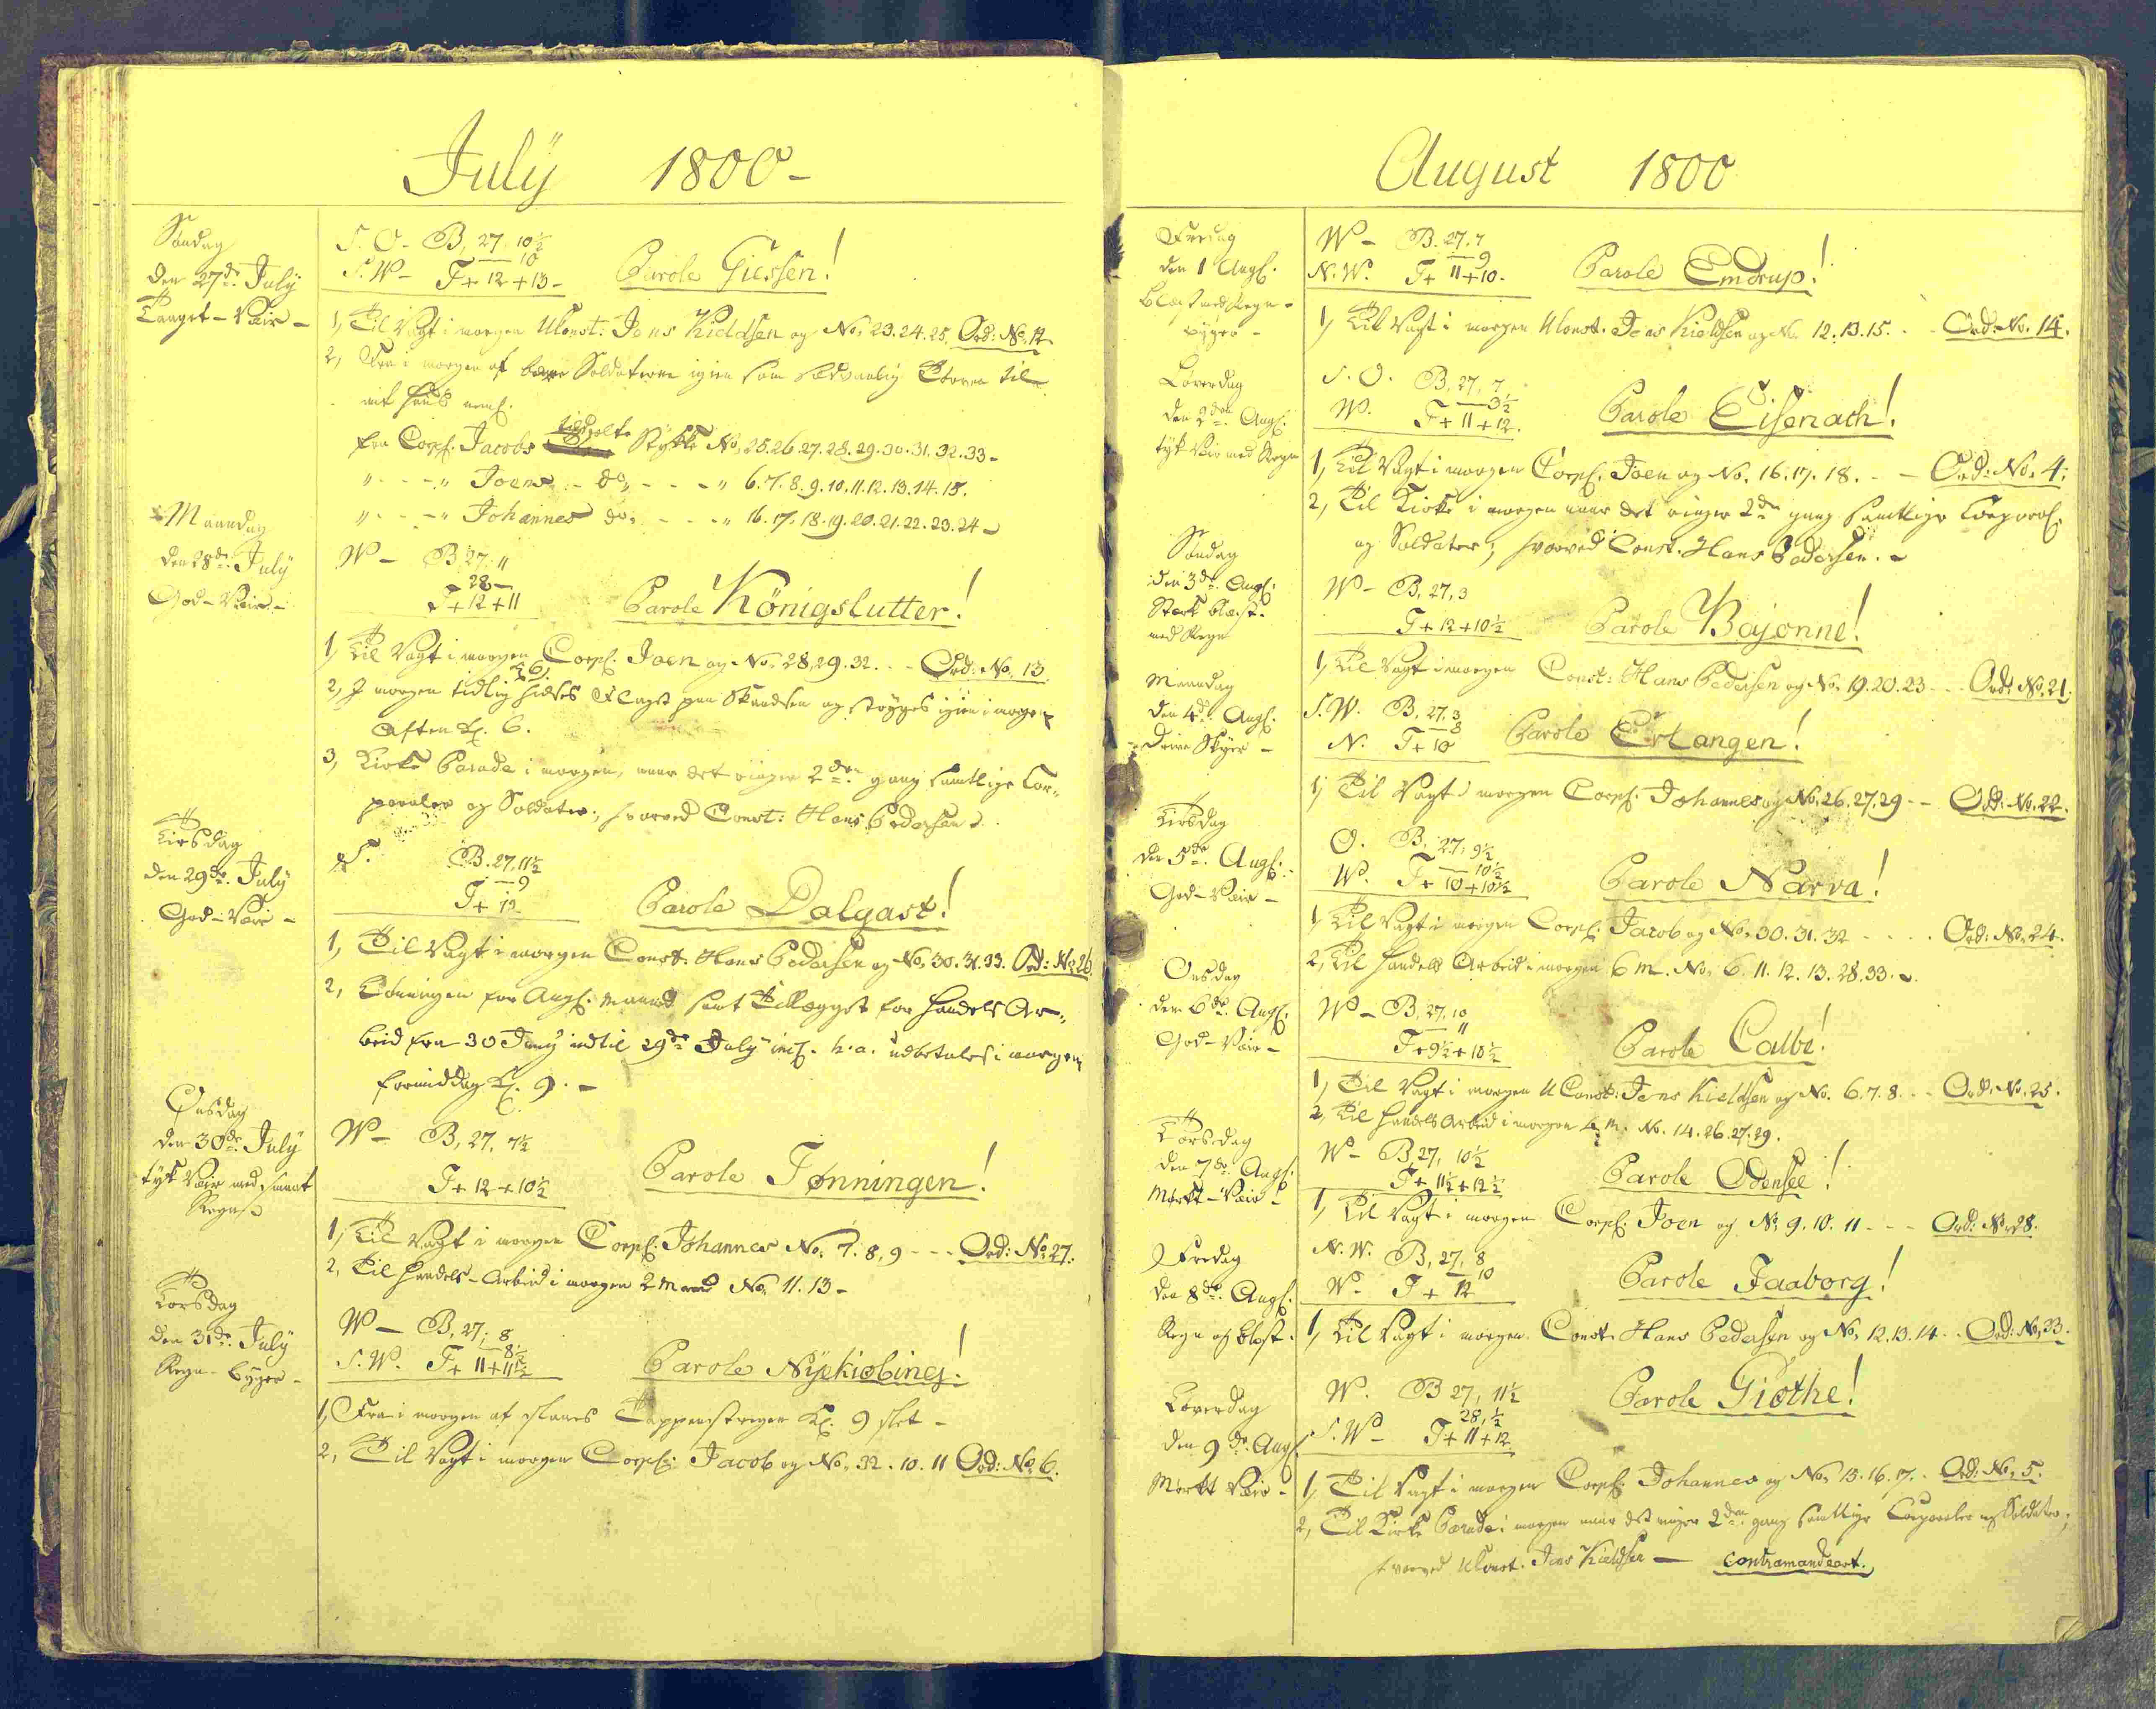 July 1800 -
Søndag
den 27de July
Taaget - Veir -
S. O - B, 27. 10½
10
S. W - T + 12 + 13 -
Parole Giessen!
1, Til Vagt i morgen UConst: Jens Kieldsen og No. 23. 24. 25. Ord: No. 12
2, Fra i morgen af bære Soldaterne igien som sædvanlig Törven til
mit Huus neml.
fra Corpl. Jacobs tildeelte Stykke No. 25. 26. 27. 28. 29. 30. 31. 32. 33 -
" - - - " Joens - do, - - - " 6. 7. 8. 9. 10. 11. 12. 13. 14. 15.
" - - - " Johannes do, - - - " 16. 17. 18. 19. 20. 21. 22. 23. 24 -
Mandag
den 28de July
God - Veir -
W - B, 27. 11
28 -
T + 12 + 11
Parole Königslutter!
1, Til Vagt i morgen Corpl. Joen og No. 28. 29. 32. - - Ord: No. 13.
2, I morgen tidlig Kl 6 hidses Flaget paa Skandsen og stryges igien i morgen
Aften Kl. 6.
3, Kirke Parade i morgen, naar det ringer 2den gang samtlige Cor-
poraler og Soldater, hvorved Const: Hans Pedersen.
Tirsdag
den 29de July
God - Veir -
S. B. 27, 11½
9
T + 12
Parole Dalgast!
1, Til Vagt i morgen Const: Hans Pedersen og No. 30. 31. 33. Ord: No. 26
2, Lönningen for Augl. Maaned samt Tillægget for Handels Ar-
beid fra 30 Juny indtil 29de July incl. h. a. udbetales i morgen
formiddag Kl. 9. -
Onsdag
den 30de July
tyk Veir med smaat
Regn
W - B, 27. 7½
T + 12 + 10½
Parole Tønningen!
1, Til Vagt i morgen Corpl: Johannes No. 7. 8, 9 - - - Ord: No. 27.
2, Til Handels-Arbeid i morgen 2 Mand No. 11. 13 -
Torsdag
den 31de July
Regn-byger -
W - B, 27, 8
8½
S. W. T + 11 + 11½
Parole Nyekiøbing!
1, Fra i morgen af slaaes Tappenstregen Kl. 9 slet -
2, Til Vagt i morgen Corpl: Jacob og No. 32. 10. 11 Ord: No. 6.
August 1800
Fredag
den 1 Augl.
Blæst med Regn-
byger -
W - B. 27. 7
9
N. W. T + 11 + 10.
Parole Emdrup!
1, Til Vagt i morgen UConst. Jens Kieldsen og No. 12. 13. 15. - Ord: No. 14.
Løverdag
den 2den Augl.
tyk Veir med Regn
S. O. B, 27, 7
3½
W. T + 11 + 12.
Parole Eisenach!
1, Til Vagt i morgen Corpl. Joen og No. 16. 17. 18. - - Ord: No. 4.
2, Til Kirke i morgen naar det ringer 2den gang samtlige Corporal.
og Soldater, hvorved Const. Hans Pedersen. -
Søndag
den 3de Augl:
Stærk blæst
med Regn
W - B, 27, 3
T + 12 + 10½
Parole Bajonne!
1, Til Vagt i morgen Const: Hans Pedersen og No. 19. 20. 23 - - Ord: No. 21.
Mandag
den 4de Augl.
Drive Skyer -
S. W. B, 27, 3
8
N. T + 10
Parole Erlangen!
1, Til Vagt i morgen Corpl: Johannes og No. 26. 27. 29 - - Ord: No. 22.
Tirsdag
den 5te Augl.
God - Veir -
O. B, 27, 9½
10½
W. T + 10 + 10½
Parole Narva!
1, Til Vagt i morgen Corpl. Jacob og No. 30. 31. 32 - - - - Ord: No. 24.
2, Til Handels Arbeid i morgen 6 M. No. 6. 11. 12. 13. 28. 33. -
Onsdag
den 6te Augl.
God - Veir -
W - B, 27, 10
11
T + 9½ + 10½
Parole Calbe!
1, Til Vagt i morgen UConst: Jens Kieldsen og No. 6. 7. 8. - - Ord: No. 25.
2, Til Handels Arbeid i morgen 4 M. No. 14. 26. 27. 29.
Torsdag
den 7de Augl.
Mørkt - Veir -
W - B 27, 10½
T + 11½ + 12½
Parole Odensee!
1, Til Vagt i morgen Corpl: Joen og No. 9. 10. 11 - - - Ord: No. 28.
Fredag
den 8de Augl.
Regn og blæst.
N. W. B, 27, 8
10
W. T + 12
Parole Faaborg!
1, Til Vagt i morgen Const. Hans Pedersen og No. 12. 13. 14 - - Ord: No. 33.
Løverdag
den 9de Augl.
Mørkt Veir -
W. B 27, 11½
28, ½
S. W - T + 11 + 12
Parole Giöthe!
1, Til Vagt i morgen Corpl. Johannes og No. 15. 16. 17. - Ord: No. 5.
2, Til Kirke Parade i morgen naar det ringer 2den gang samtlige Corporaler og Soldater,
hvorved UConst. Jens Kieldsen - contramandeert.